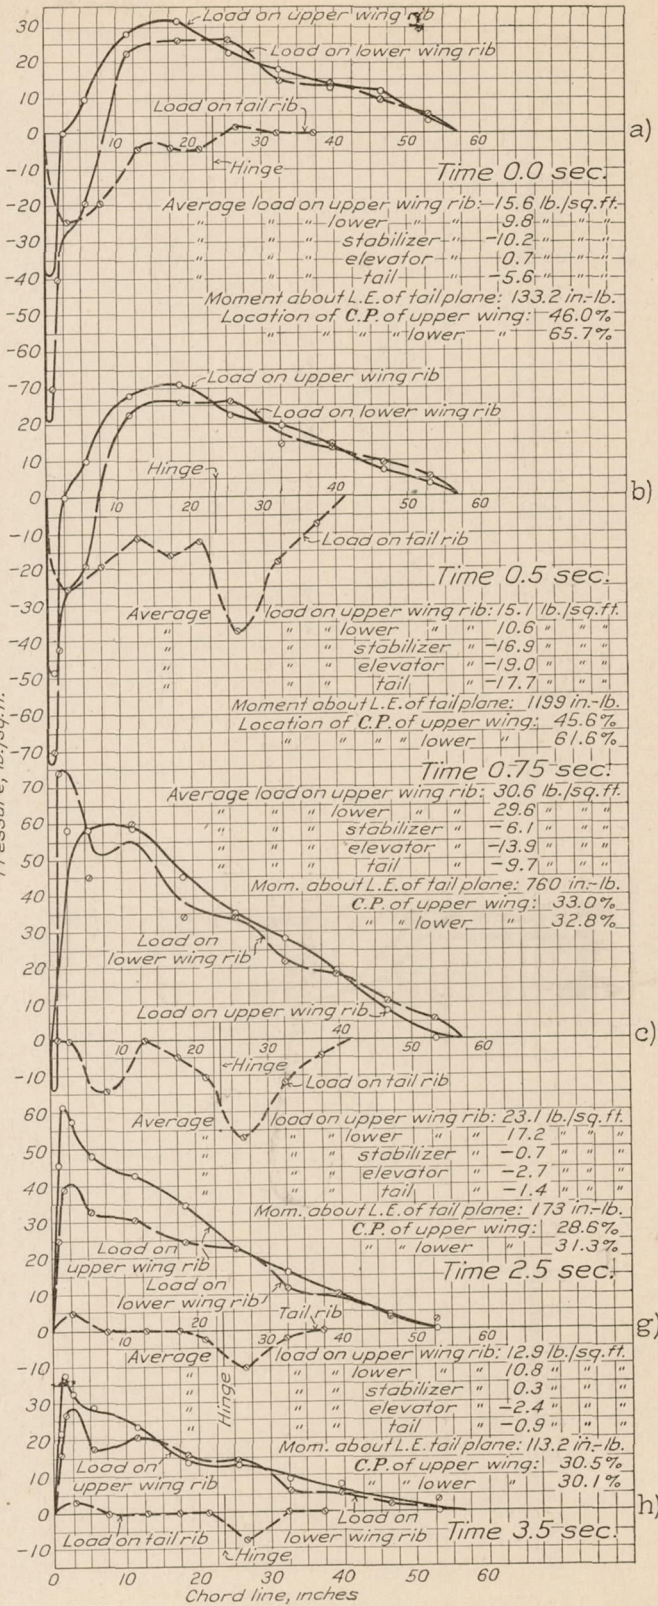 30
20
10
0
-10
-20
-30
-40
-50
-60
-70
Load on upper wing rib
Load on lower wing rib
Load on tail rib
10 20 30 40 50 60
Hinge
a)
Time 0.0 sec.
Average load on upper wing rib: 15.6 lb./sq.ft.
" " " lower " " 9.8 " " "
" " " stabilizer " -10.2 " " "
" " " elevator " 0.7 " " "
" " " tail " -5.6 " " "
Moment about L.E. of tail plane: 133.2 in.-lb.
Location of C.P. of upper wing: 46.0%
" " " " lower " 65.7%
20
10
0
-10
-20
-30
-40
-50
-60
-70
Load on upper wing rib
Load on lower wing rib
Hinge
10 20 30 40 50 60
b)
Load on tail rib
Time 0.5 sec.
Average load on upper wing rib: 15.1 lb./sq.ft.
" " " lower " " 10.6 " " "
" " " stabilizer " -16.9 " " "
" " " elevator " -19.0 " " "
" " " tail " -17.7 " " "
Moment about L.E. of tail plane: 1199 in.-lb.
Location of C.P. of upper wing: 45.6%
" " " " lower " 61.6%
Pressure, lb./sq.ft.
70
60
50
40
30
20
10
0
-10
Time 0.75 sec.
Average load on upper wing rib: 30.6 lb./sq.ft.
" " " lower " " 29.6 " " "
" " " stabilizer " -6.1 " " "
" " " elevator " -13.9 " " "
" " " tail " -9.7 " " "
Mom. about L.E. of tail plane: 760 in.-lb.
C.P. of upper wing: 33.0%
" " lower " 32.8%
Load on
lower wing rib
Load on upper wing rib
10 20 30 40 50 60
c)
Hinge
Load on tail rib
60
50
40
30
20
10
0
-10
Average load on upper wing rib: 23.1 lb./sq.ft.
" " " lower " " 17.2 " " "
" " " stabilizer " -0.7 " " "
" " " elevator " -2.7 " " "
" " " tail " -1.4 " " "
Mom. about L.E. of tail plane: 173 in.-lb.
C.P. of upper wing: 28.6%
" " lower " 31.3%
Load on
upper wing rib
Load on
lower wing rib
Time 2.5 sec.
Tail rib
10 20 30 40 50 60
g)
Hinge
30
20
10
0
-10
Average load on upper wing rib: 12.9 lb./sq.ft.
" " " lower " " 10.8 " " "
" " " stabilizer " 0.3 " " "
" " " elevator " -2.4 " " "
" " " tail " -0.9 " " "
Mom. about L.E. tail plane: 113.2 in.-lb.
C.P. of upper wing: 30.5%
" " lower " 30.1%
Load on
upper wing rib
h)
Load on tail rib
Load on
lower wing rib
Time 3.5 sec.
Hinge
0 10 20 30 40 50 60
Chord line, inches